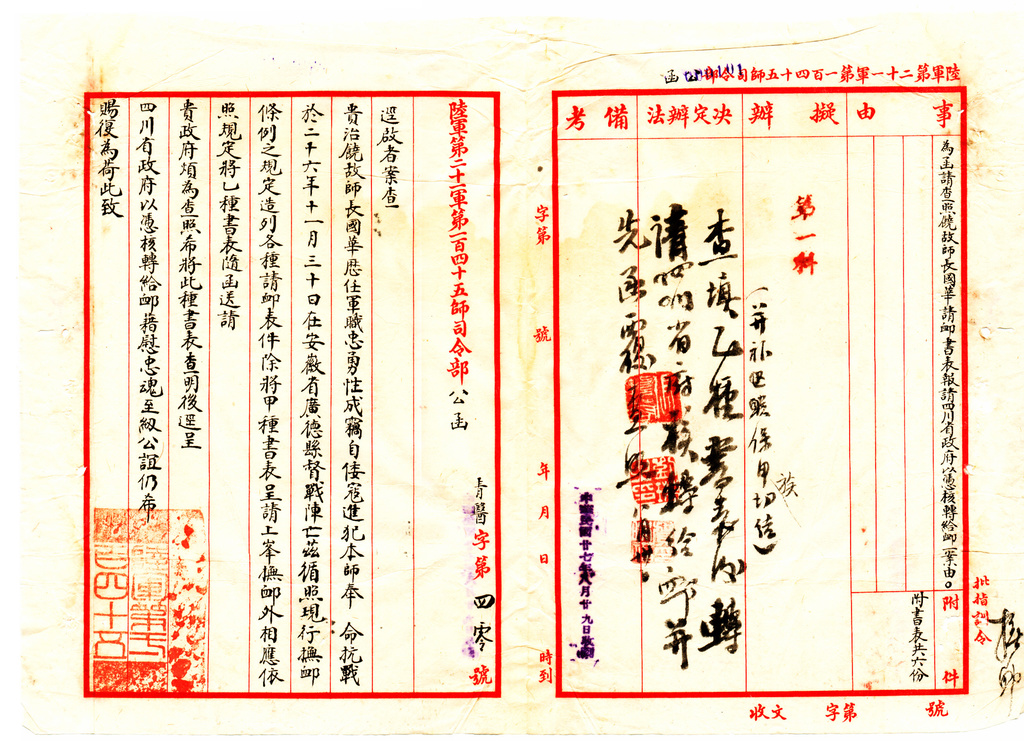 陸軍第二十一軍第一百四十五師司令部公函
事由
擬辦
決定辦法
備考
為函請查照饒故師長國華請卹書表報請四川省政府以憑核轉給卹一案由。
附件
附書表共六份
批指訓令
第一科
查填乙種書表內轉
請四川省府核轉給卹并
先函覆查照
字第 號
年 月 日 時到
收文 字第 號
陸軍第二十一軍第一百四十五師司令部公函
青醫字第四零號
逕啟者案查
貴治饒故師長國華歷任軍職忠勇性成竊自倭寇進犯本師奉 命抗戰
於二十六年十一月三十日在安徽省廣德縣督戰陣亡茲循照現行撫卹
條例之規定造列各種請卹表件除將甲種書表呈請上峯撫卹外相應依
照規定將乙種書表隨函送請
貴政府煩為查照希將此種書表查明後逕呈
四川省政府以憑核轉給卹藉慰忠魂至紉公誼仍希
賜復為荷此致